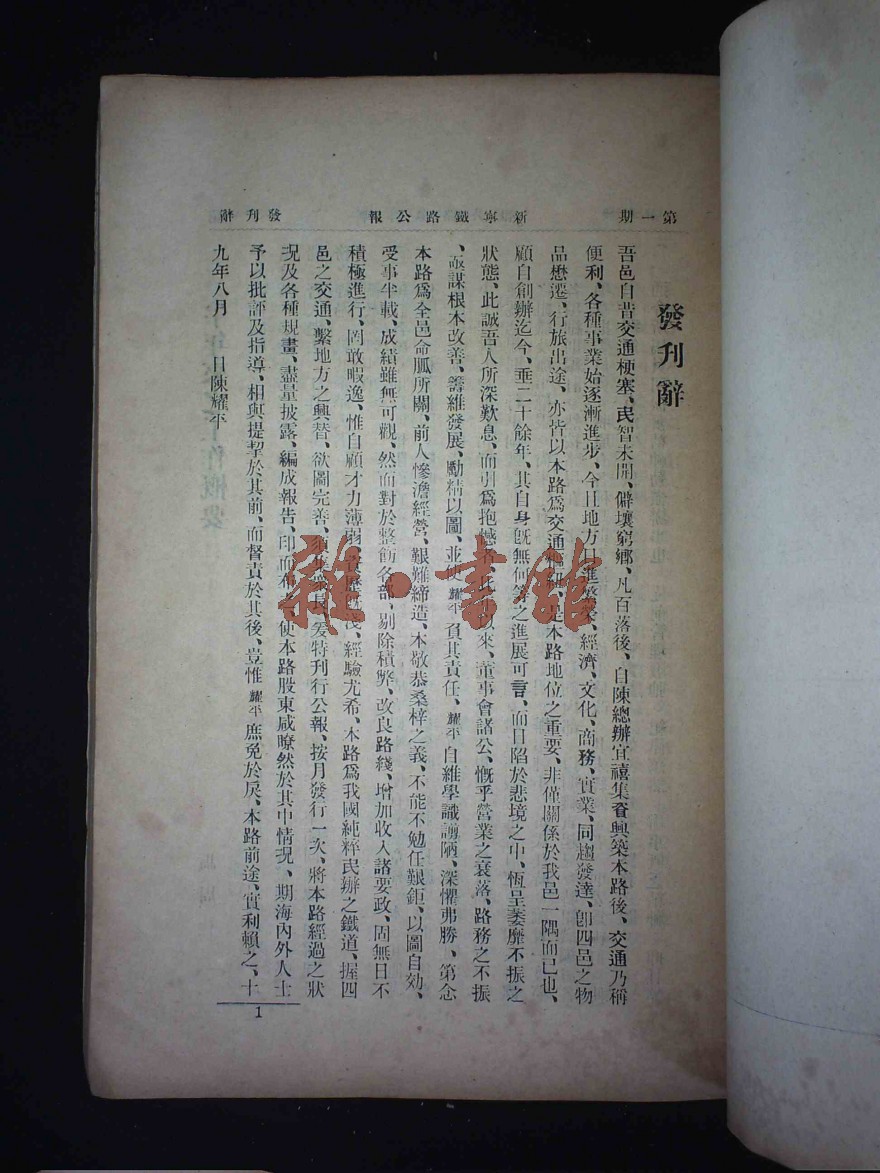 第一期 新寧鐵路公報 發刊辭
發刊辭
吾邑自昔交通梗塞、民智未開、僻壤窮鄉、凡百落後、自陳總辦宜禧集資興築本路後、交通乃稱
便利、各種事業始逐漸進步、今且地方日進繁榮、經濟、文化、商務、實業、同趨發達、卽四邑之物
品懋遷、行旅出途、亦皆以本路爲交通樞紐、是本路地位之重要、非僅關係於我邑一隅而已也、
顧自創辦迄今、垂二十餘年、其自身旣無何等之進展可言、而日陷於悲境之中、恆呈萎靡不振之
狀態、此誠吾人所深歎息、而引爲抱憾者、此以來、董事會諸公、慨乎營業之衰落、路務之不振
、亟謀根本改善、籌維發展、勵精以圖、並使耀平負其責任、耀平自維學識謭陋、深懼弗勝、第念
本路爲全邑命脈所關、前人慘澹經營、艱難締造、本敬恭桑梓之義、不能不勉任艱鉅、以圖自効、
受事半載、成績雖無可觀、然而對於整飭各部、剔除積弊、改良路綫、增加收入諸要政、固無日不
積極進行、罔敢暇逸、惟自顧才力薄弱、經驗尤希、本路爲我國純粹民辦之鐵道、握四
邑之交通、繫地方之興替、欲圖完善、爰特刊行公報、按月發行一次、將本路經過之狀
況及各種規畫、盡量披露、編成報告、印而布、使本路股東咸瞭然於其中情況、期海內外人士
予以批評及指導、相與提挈於其前、而督責於其後、豈惟耀平庶免於戾、本路前途、實利賴之、十
九年八月 日陳耀平
1
雜·書館